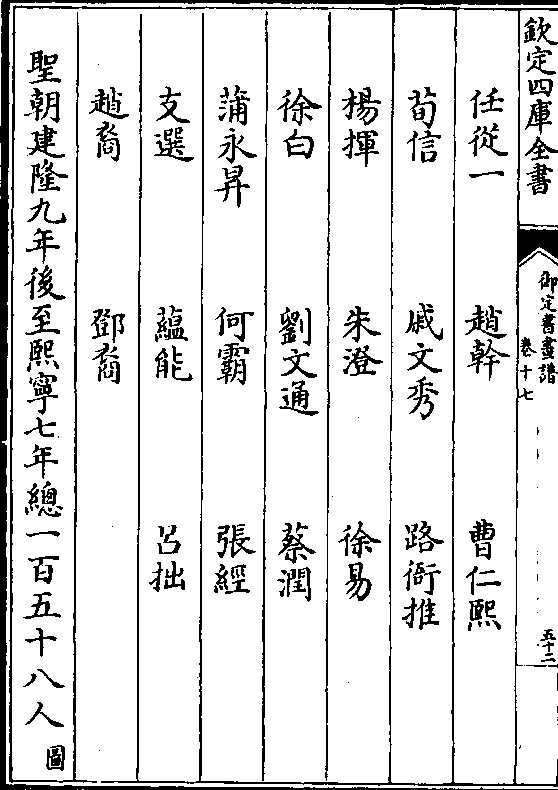 欽定四庫全書
御定書畫譜
卷十七
五十二
任從一 趙幹 曹仁熙
荀信 戚文秀 路衙推
楊揮 朱澄 徐易
徐白 劉文通 蔡潤
蒲永昇 何霸 張經
支選 蘊能 呂拙
趙裔 鄧裔
聖朝建隆九年後至熙寧七年總一百五十八人 圖